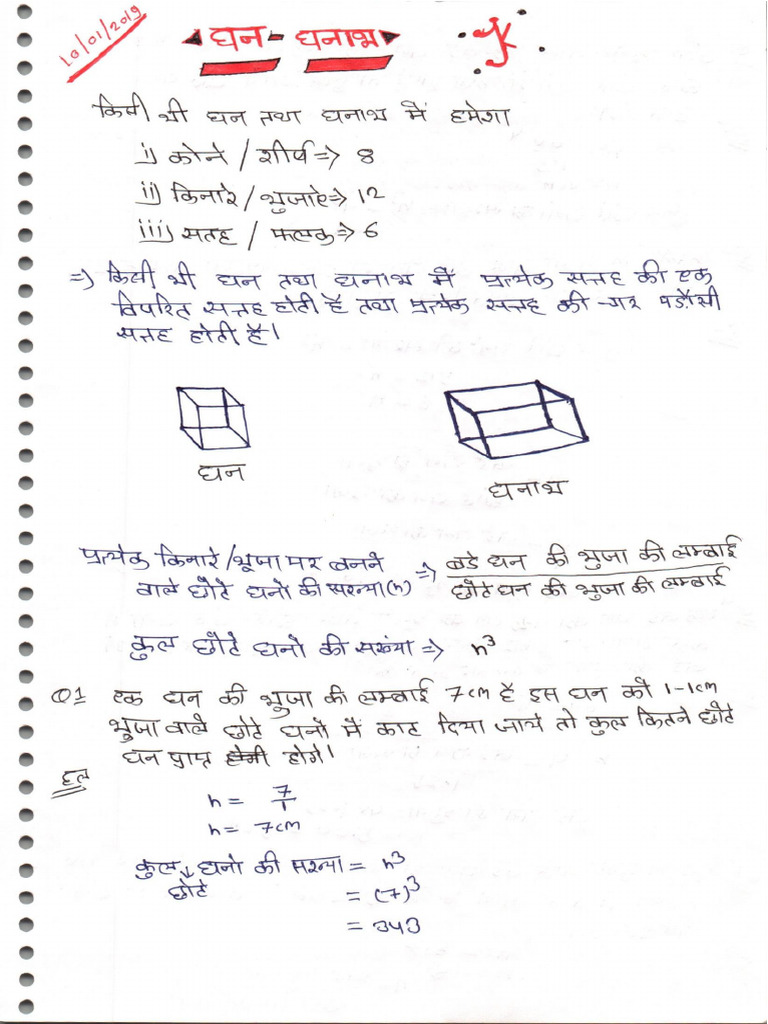 10/01/2019
घन - घनाभ
किसी भी घन तथा घनाभ में हमेशा
i) कोने / शीर्ष => 8
ii) किनारे / भुजाऐ => 12
iii) सतह / फलक => 6
=> किसी भी घन तथा घनाभ में प्रत्येक सतह की एक
विपरित सतह होती है तथा प्रत्येक सतह की चार पडौसी
सतह होती है।
घन
घनाभ
प्रत्येक किनारे/भूजा पर बनने
वाले छोटे घनो की सख्या (n) => बडे घन की भुजा की लम्बाई
छोटे घन की भुजा की लम्बाई
कुल छोटे घनो की सख्या => n³
Q1 एक घन की भुजा की लम्बाई 7cm है इस घन को 1-1cm
भुजा वाले छोटे घनो में काट दिया जाये तो कुल कितने छोटे
घन प्राप्त होगे।
हल
n = 7/1
n = 7cm
कुल घनो की सख्या = n³
छोटे
= (7)³
= 343